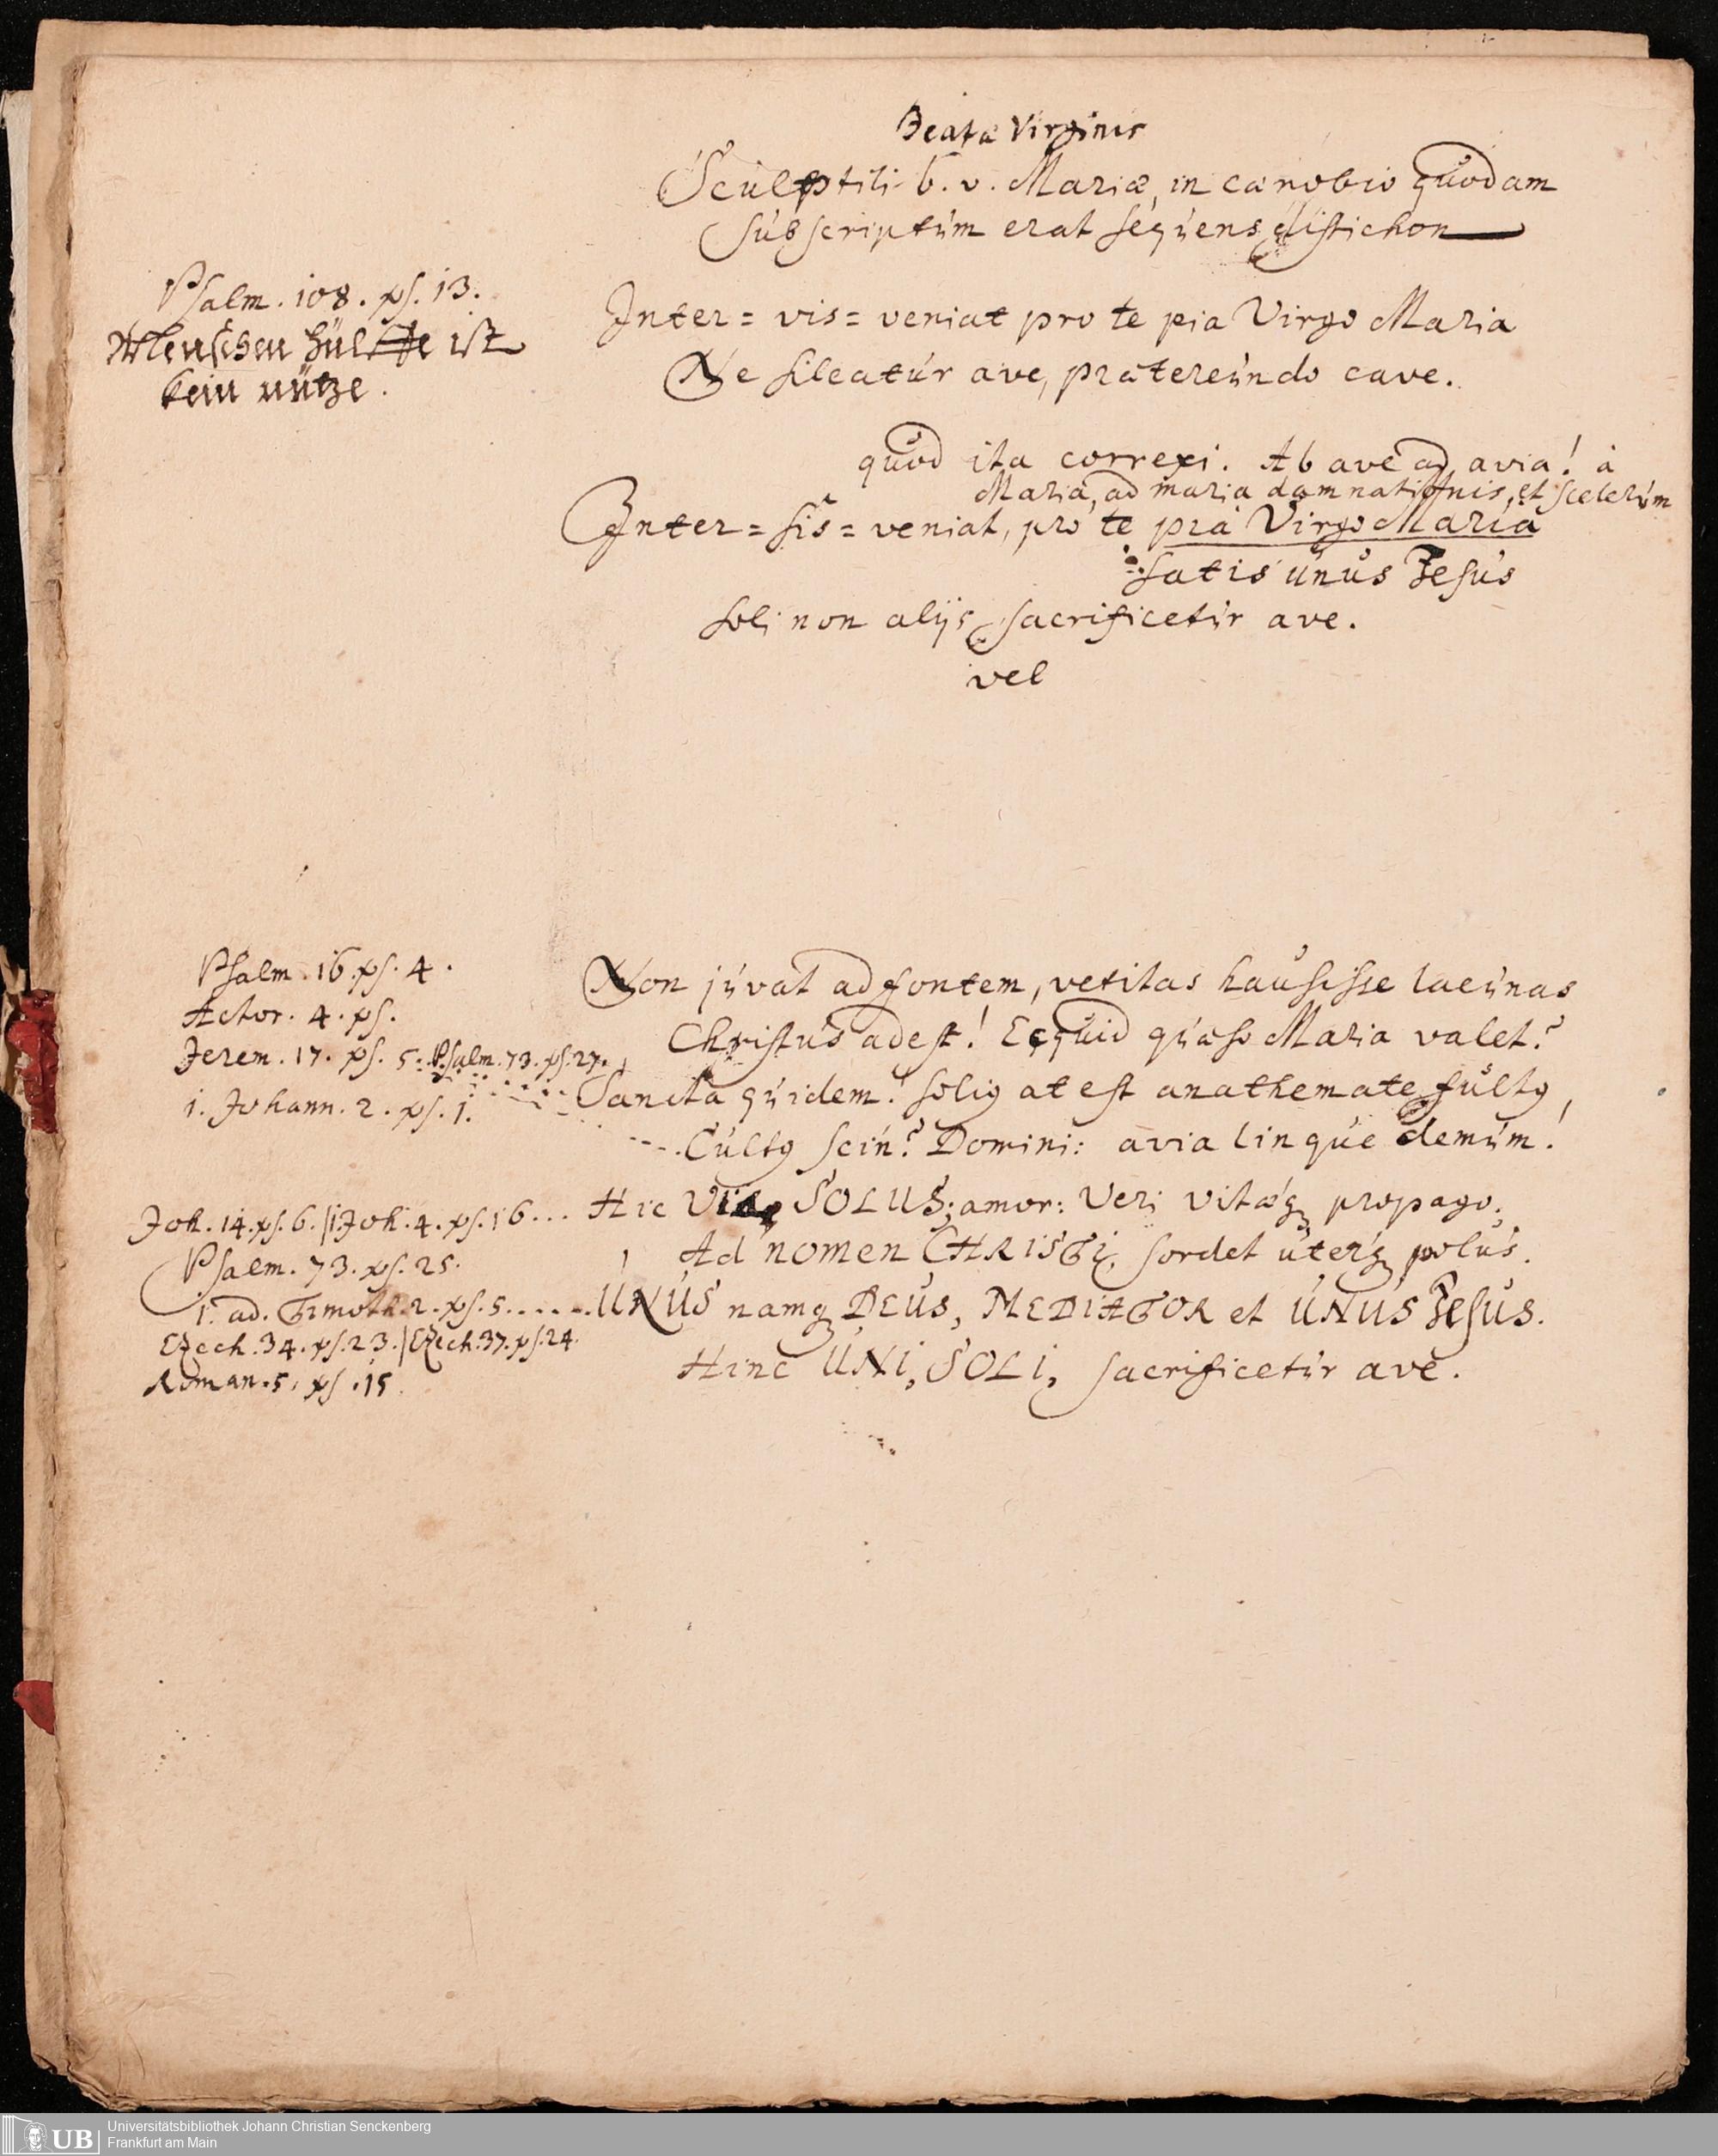 Beatæ Virginis
Sculptili b. v. Mariæ, in cœnobio quodam
subscriptum erat sequens distichon
Psalm. 108. ps. 13.
Menschen hülffe ist
kein nütze.
Inter = vis = veniat pro te pia Virgo Maria
Ne sileatur ave, prætereundo cave.
quod ita correxi. Ab ave ad avia! à
Maria, ad maria damnationis, et scelerum
Inter = sis = veniat, pro te præ Virgo Maria
satis unus Jesus
soli non alijs sacrificetur ave.
vel
Psalm. 16. ps. 4.
Actor. 4. ps.
Jerem. 17. ps. 5. Psalm. 73. ps. 27.
1. Johann. 2. ps. 1.
Non juvat ad fontem, vetitas hausisse lacunas
Christus adest! Ecquid quæso Maria valet?
Sancta quidem! soliq at est anathemate fultq,
Cultq scin? Domini: avia linque demum!
Joh. 14. ps. 6. | 1. Joh. 4. ps. 16 ...
Psalm. 73. ps. 25.
1. ad. Timoth. 2. ps. 5......
Ezech. 34. ps. 23. | Ezech. 37. ps. 24.
Roman. 5. ps. 15.
Hic SOLUS; amor: Veri vitæq propago.
Ad nomen CHRISTI, sordet uterq polus.
UNUS namq DEUS, MEDIATOR et UNUS JESUS.
Hinc UNI, SOLI, sacrificetur ave.
UB
Universitätsbibliothek Johann Christian Senckenberg
Frankfurt am Main